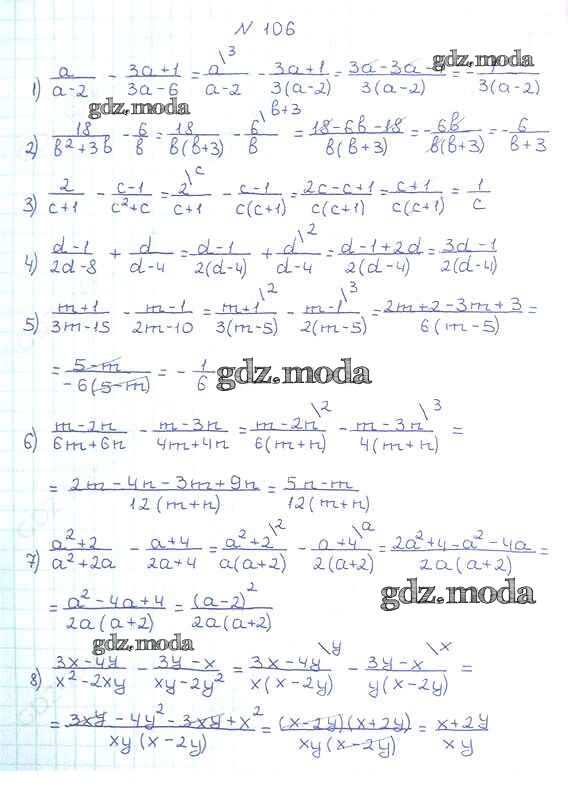 N 106
1) a/(a-2) - (3a+1)/(3a-6) = a\3/(a-2) - (3a+1)/(3(a-2)) = (3a-3a- /(3(a-2)) = - /(3(a-2))
gdz.moda gdz.moda
2) 18/(b²+3b) - 6/b = 18/(b(b+3)) - 6\b+3/b = (18-6b-18)/(b(b+3)) = -6b/(b(b+3)) = -6/(b+3)
3) 2/(c+1) - (c-1)/(c²+c) = 2\c/(c+1) - (c-1)/(c(c+1)) = (2c-c+1)/(c(c+1)) = (c+1)/(c(c+1)) = 1/c
4) (d-1)/(2d-8) + d/(d-4) = (d-1)/(2(d-4)) + d\2/(d-4) = (d-1+2d)/(2(d-4)) = (3d-1)/(2(d-4))
5) (m+1)/(3m-15) - (m-1)/(2m-10) = (m+1)\2/(3(m-5)) - (m-1)\3/(2(m-5)) = (2m+2-3m+3)/(6(m-5)) =
= (5-m)/(-6(5-m)) = -1/6 gdz.moda
6) (m-2n)/(6m+6n) - (m-3n)/(4m+4n) = (m-2n)\2/(6(m+n)) - (m-3n)\3/(4(m+n)) =
= (2m-4n-3m+9n)/(12(m+n)) = (5n-m)/(12(m+n))
7) (a²+2)/(a²+2a) - (a+4)/(2a+4) = (a²+2)\2/(a(a+2)) - (a+4)\a/(2(a+2)) = (2a²+4-a²-4a)/(2a(a+2)) =
= (a²-4a+4)/(2a(a+2)) = (a-2)²/(2a(a+2)) gdz.moda
gdz.moda
8) (3x-4y)/(x²-2xy) - (3y-x)/(xy-2y²) = (3x-4y)\y/(x(x-2y)) - (3y-x)\x/(y(x-2y)) =
= (3xy-4y²-3xy+x²)/(xy(x-2y)) = (x-2y)(x+2y)/(xy(x-2y)) = (x+2y)/(xy)